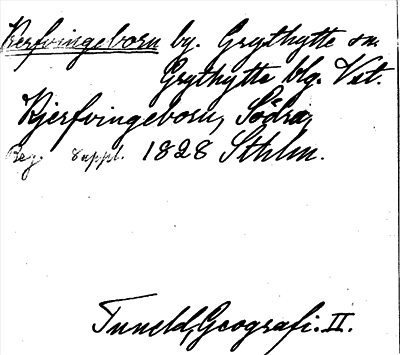 Kerfvingeborn by. Grythytte sn.
Grythytte blg. Vstm.
Kjerfvingeborn, Södra,
Reg. suppl. 1828 Sthlm.
Tuneld, Geografi. II.